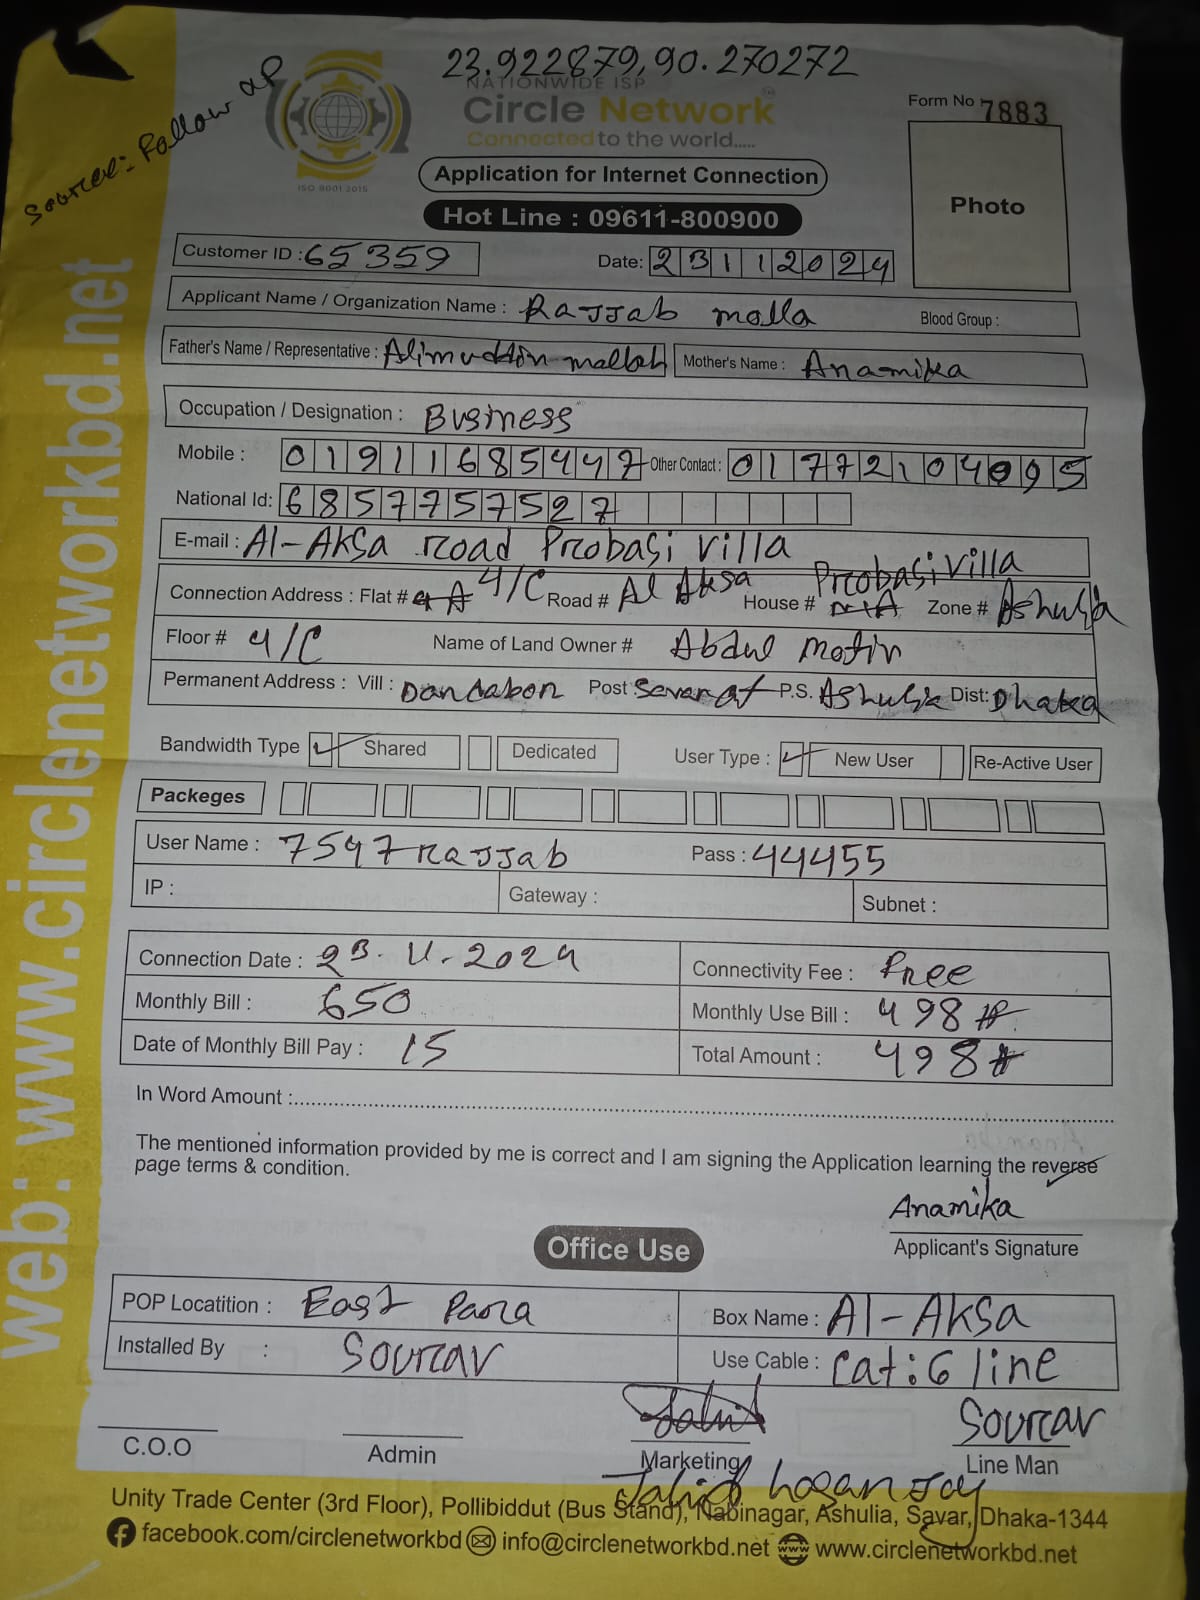 23.922879, 90.270272
Source:- Follow up
NATIONWIDE ISP
Circle Network
Connected to the world.....
ISO 9001 2015
Form No 7883
Photo
Application for Internet Connection
Hot Line : 09611-800900
Customer ID : 65359 Date: 23112024
Applicant Name / Organization Name : Rajjab molla Blood Group :
Father's Name / Representative : Alimuddin mollah Mother's Name : Anamika
Occupation / Designation : Business
Mobile : 01911685447 Other Contact : 01772104095
National Id: 6857757527
E-mail : Al-Aksa road Probasi villa
Connection Address : Flat # 4/C Road # Al Aksa House # Probasi villa Zone # Ashulia
Floor # 4/C Name of Land Owner # Abdul motin
Permanent Address : Vill : Dandabon Post P.S. Ashulia Dist: Dhaka
Bandwidth Type Shared Dedicated User Type : New User Re-Active User
Packeges
User Name : 7547Rajjab Pass : 44455
IP : Gateway : Subnet :
Connection Date : 23. 11. 2024 Connectivity Fee : Free
Monthly Bill : 650 Monthly Use Bill : 498
Date of Monthly Bill Pay : 15 Total Amount : 498
In Word Amount :
The mentioned information provided by me is correct and I am signing the Application learning the reverse
page terms & condition.
Anamika
Applicant's Signature
Office Use
POP Locatition : East Para Box Name : Al-AKSa
Installed By : Sourav Use Cable : Cat:6 line
Sourav
C.O.O Admin Marketing Line Man
Unity Trade Center (3rd Floor), Pollibiddut (Bus Stand), Nabinagar, Ashulia, Savar, Dhaka-1344
facebook.com/circlenetworkbd info@circlenetworkbd.net www.circlenetworkbd.net
web: www.circlenetworkbd.net